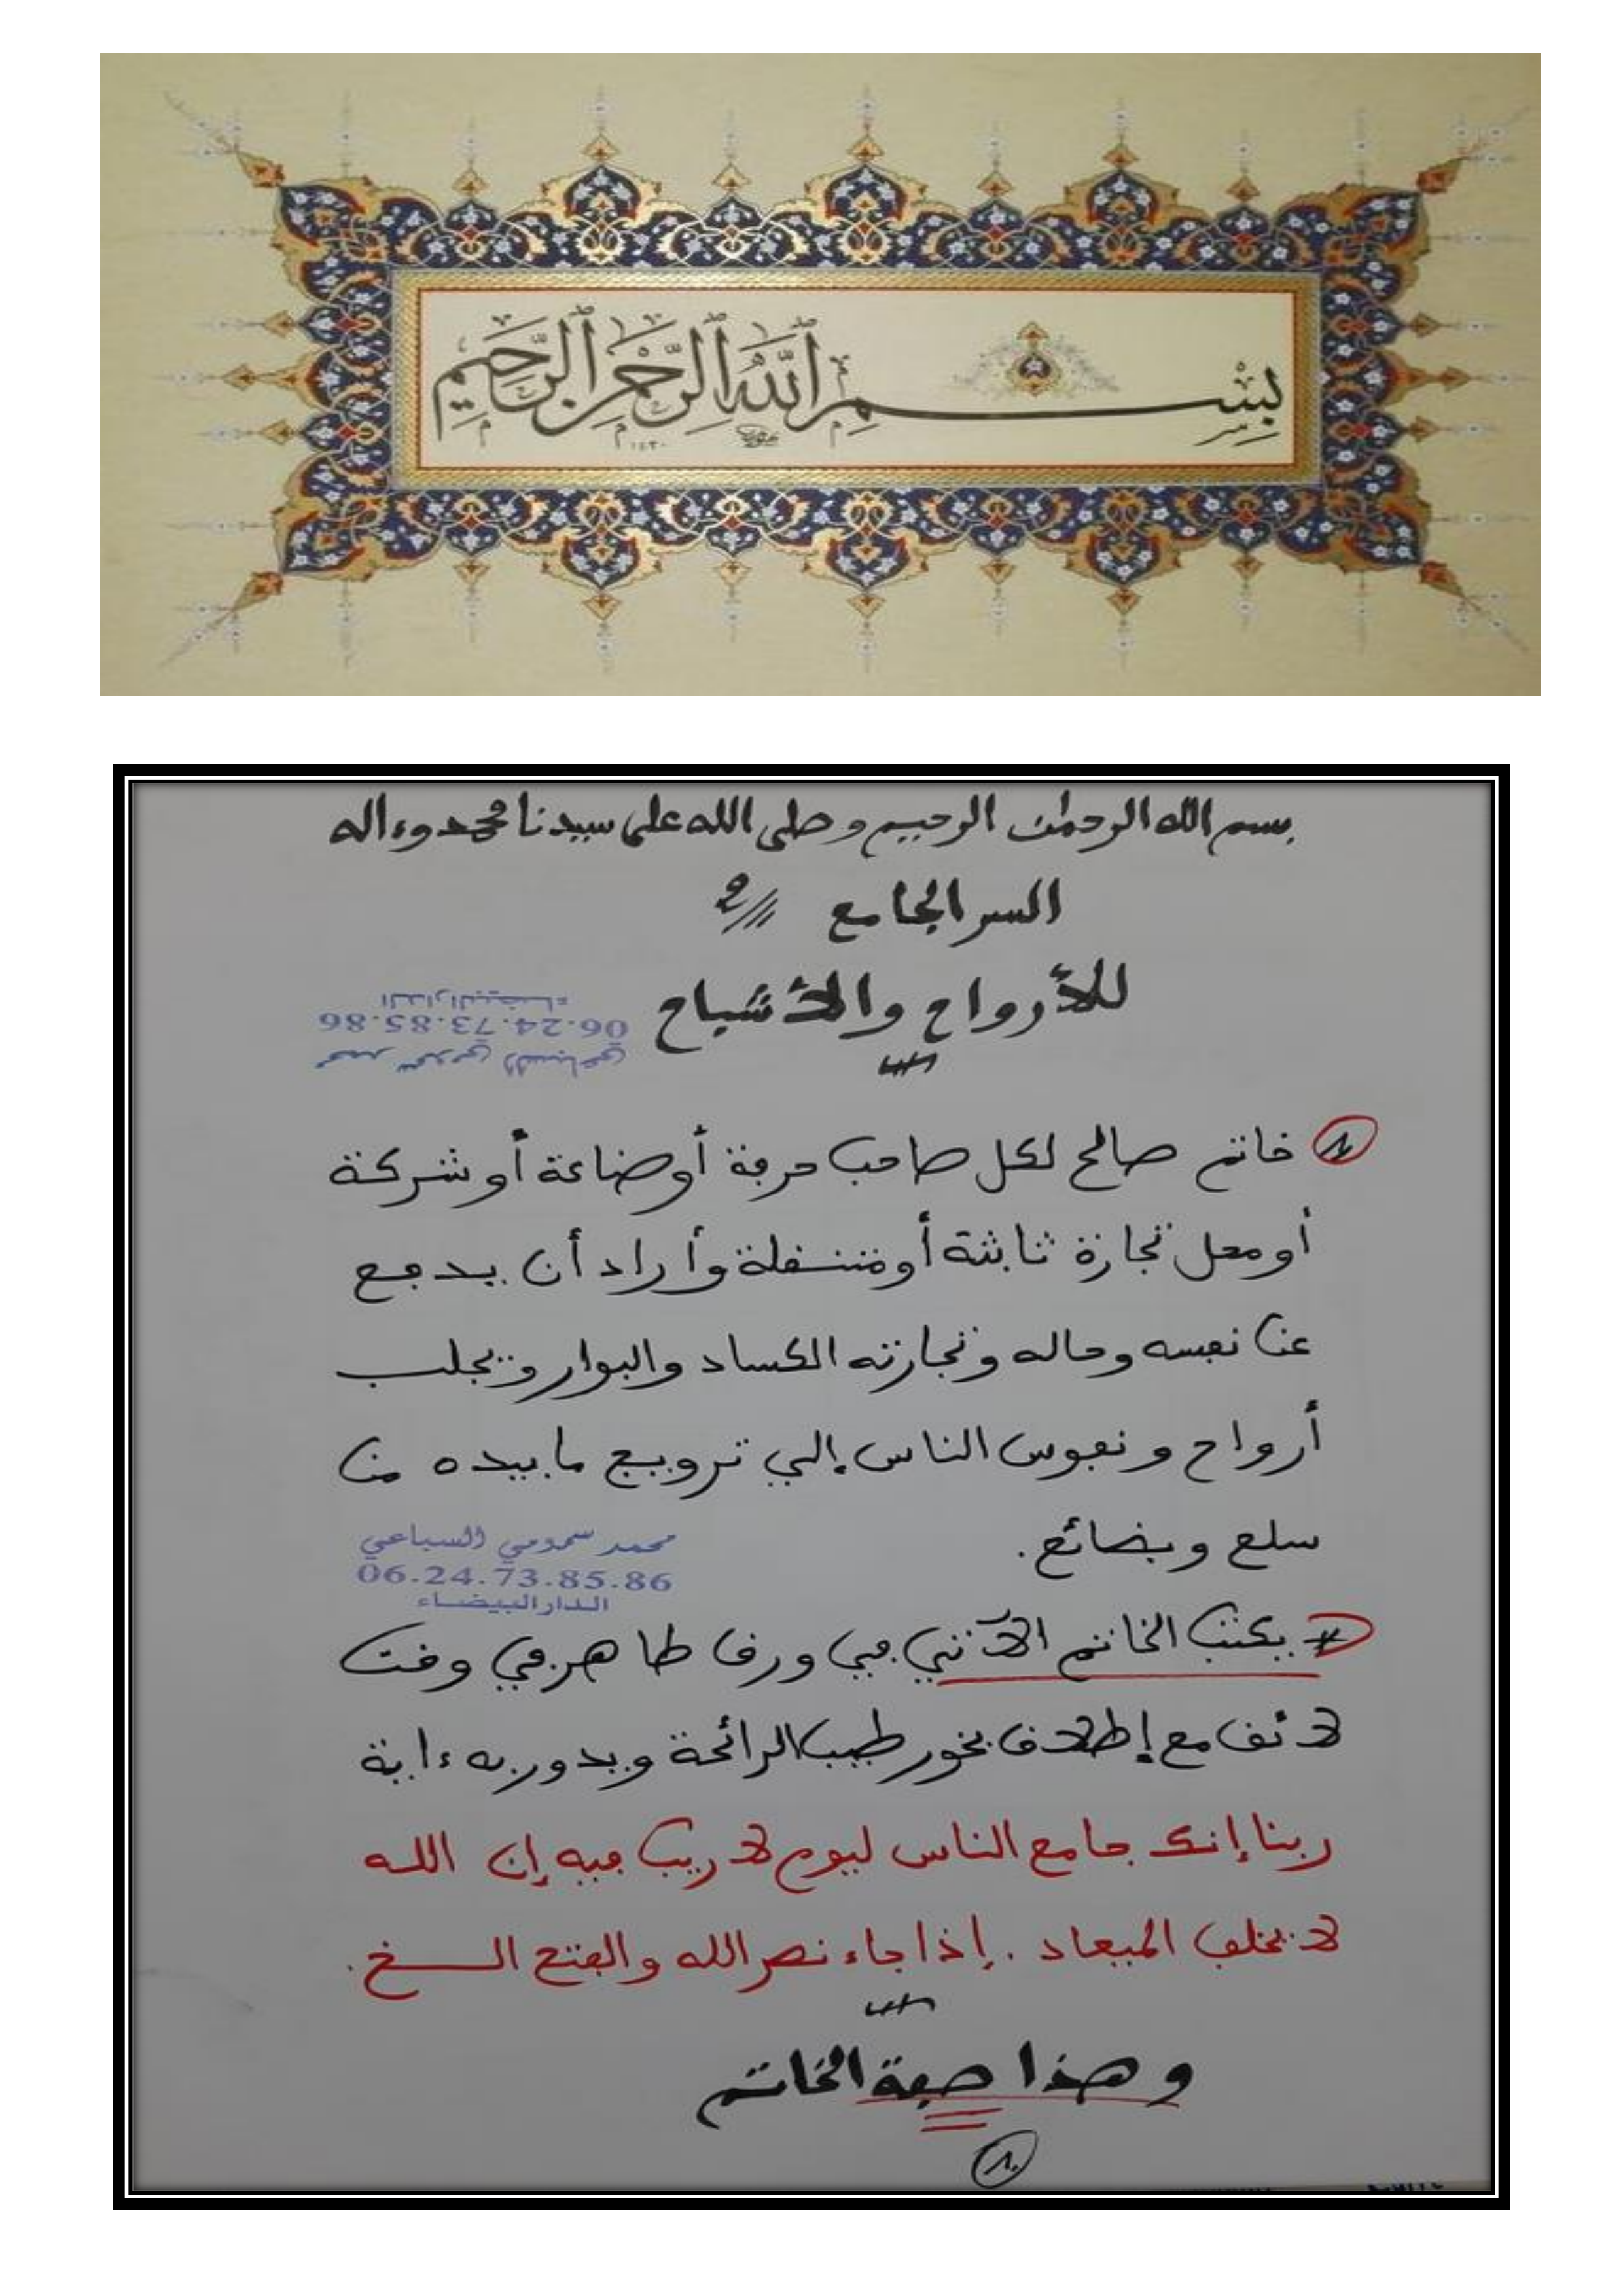 بِسْمِ ٱللَّهِ ٱلرَّحْمَٰنِ ٱلرَّحِيمِ
١٤٣٠
بسم الله الرحمٰن الرحيم وصلى الله على سيدنا محمد وءاله
السر الجامع
للأرواح والأشباح
محمد سمومي السباعي
06.24.73.85.86
الدار البيضاء
1 خاتم صالح لكل صاحب حرفة أو صناعة أو شركة
أو محل تجارة ثابثة أو متنقلة وأراد أن يدفع
عن نفسه وماله وتجارته الكساد والبوار ويجلب
أرواح ونفوس الناس إلى ترويج ما بيده من
سلع وبضائع.
محمد سمومي السباعي
06.24.73.85.86
الدار البيضاء
يكتب الخاتم الآتي في ورق طاهر في وقت
لائق مع إطلاق بخور طيب الرائحة ويدور به ءاية
ربنا إنك جامع الناس ليوم لا ريب فيه إن الله
لا يخلف الميعاد . إذا جاء نصر الله والفتح الخ .
وهذا صفة الخاتم
1.